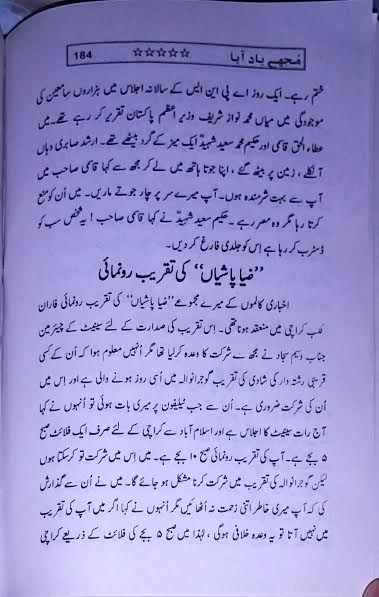 مجھے یاد آیا ☆☆☆☆☆ 184
ختم رہے۔ ایک روز اے پی این ایس کے سالانہ اجلاس میں ہزاروں سامعین کی
موجودگی میں میاں محمد نواز شریف وزیر اعظم پاکستان تقریر کر رہے تھے۔ میں
عطاء الحق قاسمی اور حکیم محمد سعید شہیدؒ ایک میز کے گرد بیٹھے تھے۔ ارشد صابری وہاں
آنکلے، زمین پر بیٹھ گئے، اپنا جوتا ہاتھ میں لے کر مجھ سے کہا قاسمی صاحب میں
آپ سے بہت شرمندہ ہوں۔ آپ میرے سر پر چار جوتے ماریں۔ میں اُن کو منع
کرتا رہا مگر وہ مصر رہے۔ حکیم سعید شہیدؒ نے کہا قاسمی صاحب! یہ شخص سب کو
ڈسٹرب کر رہا ہے اِس کو جلدی فارغ کر دیں۔
”ضیا پاشیاں“ کی تقریب رونمائی
اخباری کالموں کے میرے مجموعے ”ضیا پاشیاں“ کی تقریب رونمائی فاران
کلب کراچی میں منعقد ہونا تھی۔ اِس تقریب کی صدارت کے لئے سینیٹ کے چیئرمین
جناب وسیم سجاد نے مجھ سے شرکت کا وعدہ کر لیا تھا مگر اُنہیں معلوم ہوا کہ اُن کے کسی
قریبی رشتہ دار کی شادی کی تقریب گوجرانوالہ میں اُسی روز ہونے والی ہے اور اِس میں
اُن کی شرکت ضروری ہے۔ اُن سے جب ٹیلیفون پر میری بات ہوئی تو اُنہوں نے کہا
آج رات سینیٹ کا اجلاس ہے اور اسلام آباد سے کراچی کے لئے صرف ایک فلائٹ صبح
۵ بجے ہے۔ آپ کی تقریب رونمائی صبح ۱۰ بجے ہے۔ میں اِس میں شرکت تو کر سکتا ہوں
لیکن گوجرانوالہ کی تقریب میں شرکت کرنا مشکل ہو جائے گا۔ میں نے اُن سے گذارش
کی کہ آپ میری خاطر اتنی زحمت نہ اُٹھائیں مگر اُنہوں نے کہا اگر میں آپ کی تقریب
میں نہیں آتا تو یہ وعدہ خلافی ہوگی، لہٰذا میں صبح ۵ بجے کی فلائٹ کے ذریعے کراچی